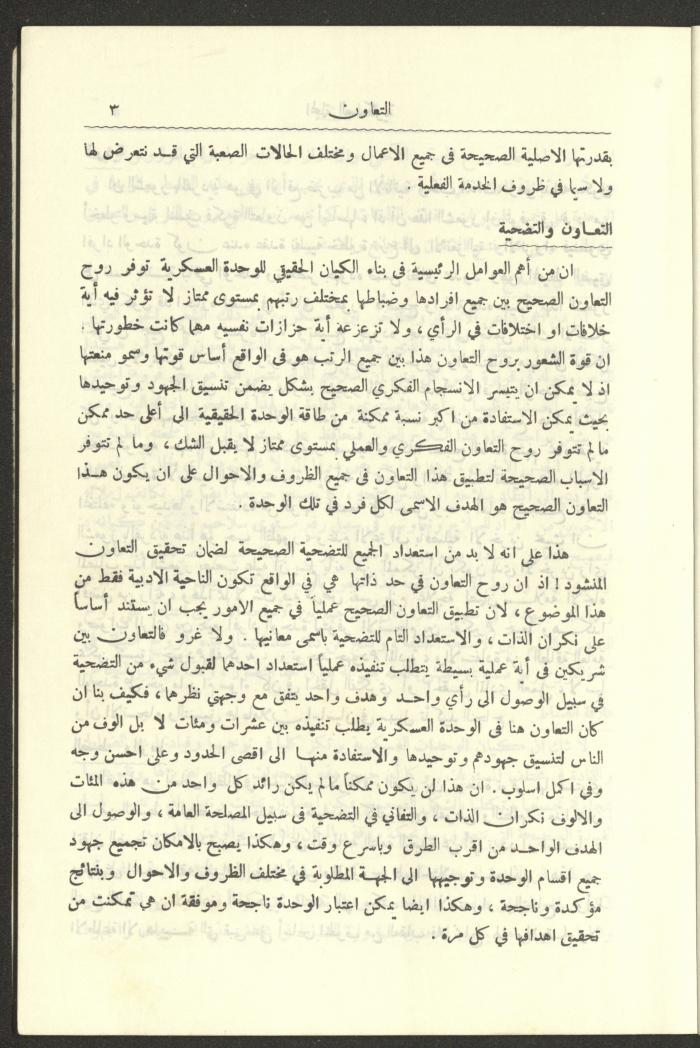 التعاون ٣
بقدرتها الاصلية الصحيحة فى جميع الاعمال ومختلف الحالات الصعبة التي قد نتعرض لها
ولا سيما في ظروف الخدمة الفعلية .
التعاون والتضحية
ان من أهم العوامل الرئيسية فى بناء الكيان الحقيقي للوحدة العسكرية توفر روح
التعاون الصحيح بين جميع افرادها وضباطها بمختلف رتبهم بمستوى ممتاز لا تؤثر فيه أية
خلافات او اختلافات في الرأي ، ولا تزعزعه أية حزازات نفسيه مهما كانت خطورتها .
ان قوة الشعور بروح التعاون هذا بين جميع الرتب هو فى الواقع أساس قوتها وسمو منعتها
اذ لا يمكن ان يتيسر الانسجام الفكري الصحيح بشكل يضمن تنسيق الجهود وتوحيدها
بحيث يمكن الاستفادة من اكبر نسبة ممكنة من طاقة الوحدة الحقيقية الى أعلى حد ممكن
ما لم تتوفر روح التعاون الفكري والعملي بمستوى ممتاز لا يقبل الشك ، وما لم تتوفر
الاسباب الصحيحة لتطبيق هذا التعاون فى جميع الظروف والاحوال على ان يكون هذا
التعاون الصحيح هو الهدف الاسمى لكل فرد في تلك الوحدة .
هذا على انه لا بد من استعداد الجميع للتضحية الصحيحة لضمان تحقيق التعاون
المنشود ! اذ ان روح التعاون في حد ذاتها هي في الواقع تكون الناحية الادبية فقط من
هذا الموضوع ، لان تطبيق التعاون الصحيح عملياً في جميع الامور يجب ان يستند أساساً
على نكران الذات ، والاستعداد التام للتضحية باسمى معانيها . ولا غرو فالتعاون بين
شريكين فى أية عملية بسيطة يتطلب تنفيذه عملياً استعداد احدهما لقبول شيء من التضحية
في سبيل الوصول الى رأي واحد وهدف واحد يتفق مع وجهتي نظرهما ، فكيف بنا ان
كان التعاون هنا فى الوحدة العسكرية يطلب تنفيذه بين عشرات ومئات لا بل الوف من
الناس لتنسيق جهودهم وتوحيدها والاستفادة منها الى اقصى الحدود وعلى احسن وجه
وفي اكمل اسلوب . ان هذا لن يكون ممكناً ما لم يكن رائد كل واحد من هذه المئات
والالوف نكران الذات ، والتفاني في التضحية فى سبيل المصلحة العامة ، والوصول الى
الهدف الواحد من اقرب الطرق وباسرع وقت ، وهكذا يصبح بالامكان تجميع جهود
جميع اقسام الوحدة وتوجيهها الى الجهة المطلوبة في مختلف الظروف والاحوال وبنتائج
مؤكدة وناجحة ، وهكذا ايضا يمكن اعتبار الوحدة ناجحة وموفقة ان هي تمكنت من
تحقيق اهدافها في كل مرة .